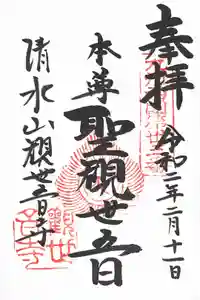 奉拝
令和二年二月十一日
本尊
聖観世音
清水山観世音寺